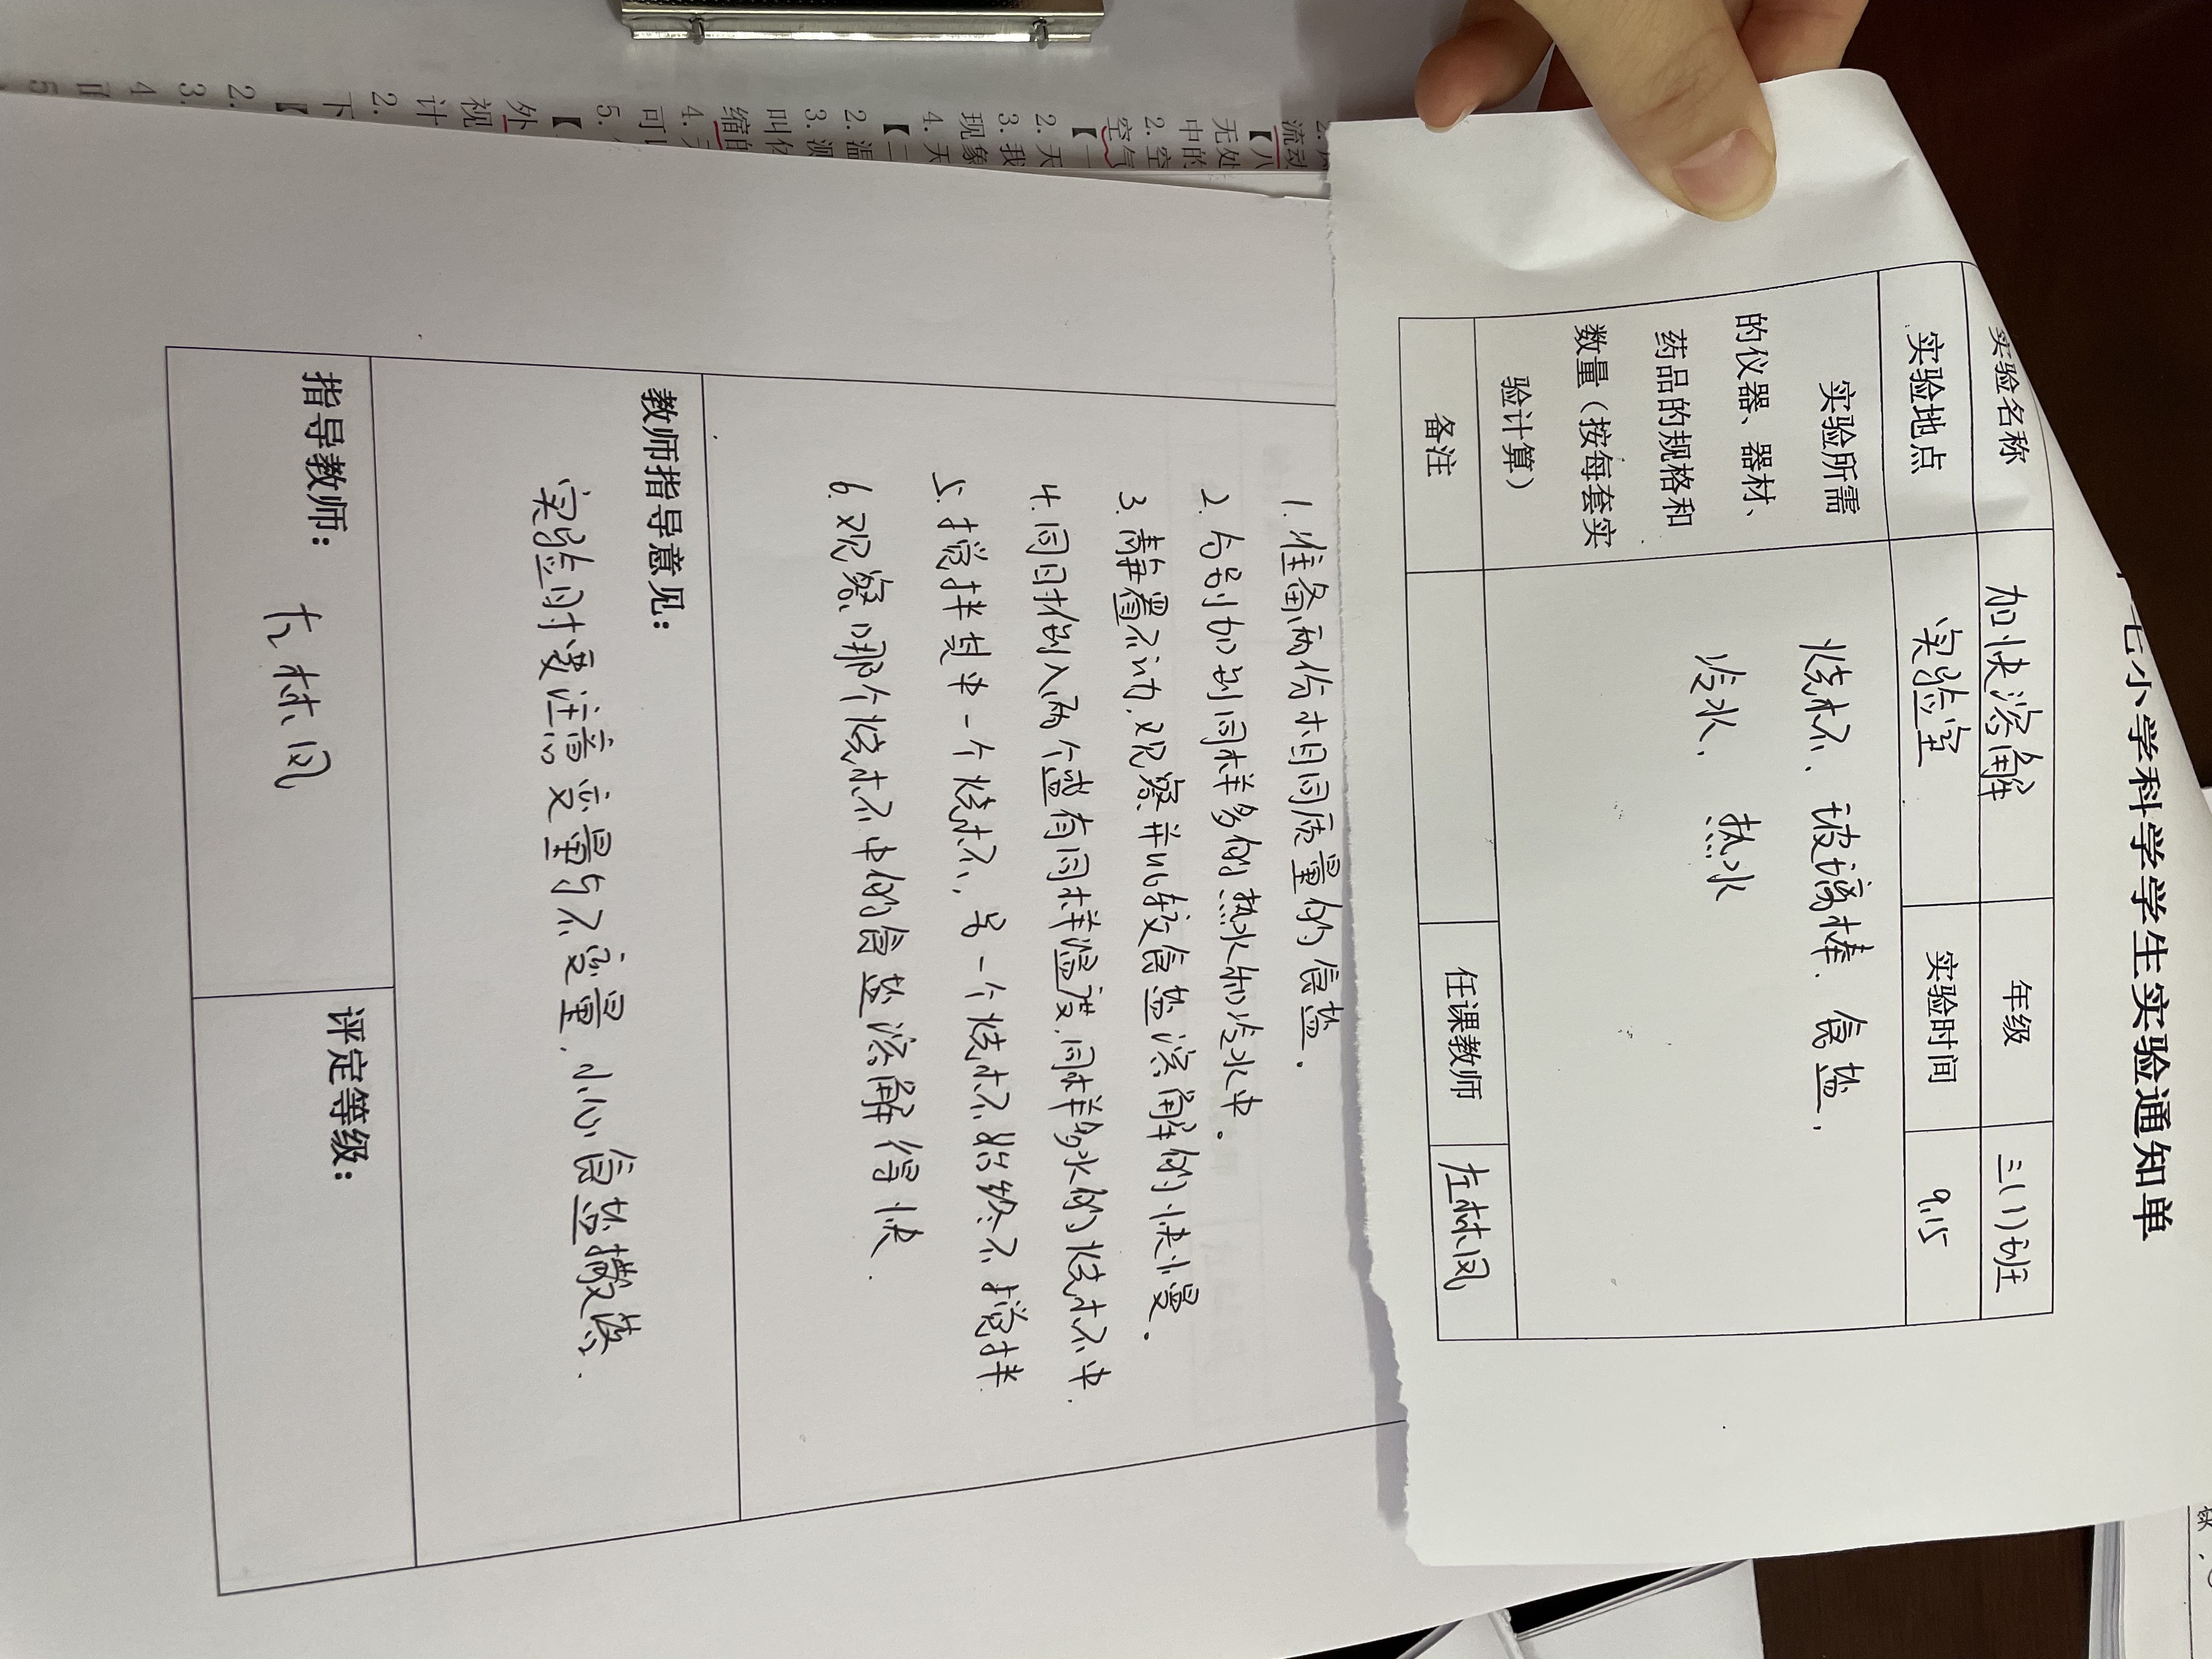 七小学科学学生实验通知单
实验名称 加快溶解 年级 三(1)班
实验地点 实验室 实验时间 9.15
实验所需
的仪器、器材、
药品的规格和
数量（按每套实
验计算）
烧杯、玻璃棒、食盐、
冷水、热水
备注 任课教师 左林凤
1.准备两份相同质量的食盐.
2.分别加到同样多的热水和冷水中。
3.静置不动,观察并比较食盐溶解的快慢。
4.同时倒入两个盛有同样温度,同样多水的烧杯中.
5.搅拌其中一个烧杯,另一个烧杯始终不搅拌
6.观察哪个烧杯中的食盐溶解得快.
教师指导意见：
实验时要注意变量与不变量,小心食盐撒落.
指导教师： 左林凤
评定等级：
流动
【八
无处
中的
2.空
空气
【一
2.天
3.我
现象
4.天
【二
2.温
3.液
叫体
缩的
可以
5.
【
外
视
2.
计
下
【
2.
3.
4